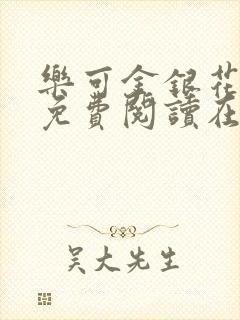 樂可金銀花
免費閱讀在
吴大先生